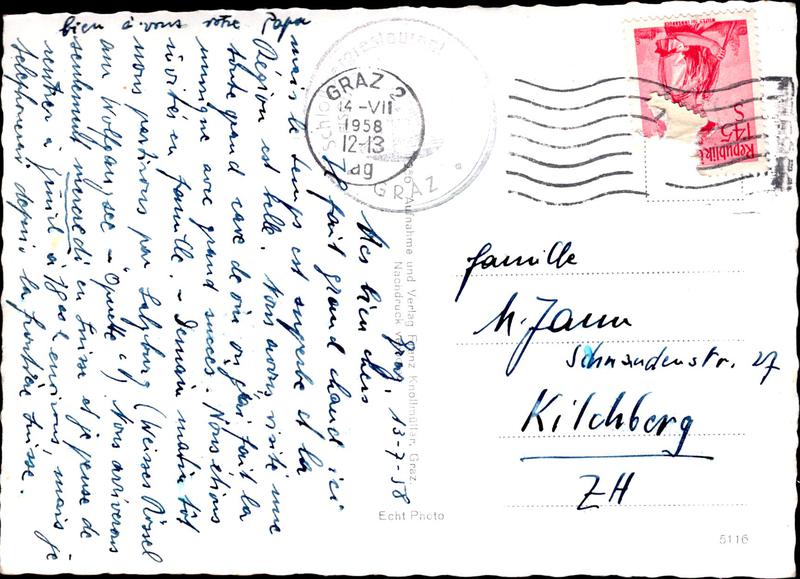 Graz, 13-7-58
Mes bien chers
Il fait grand chaud ici
mais le temps est superbe et la
Région est belle. Nous avons visité une
toute grand cave de vin où j'ai fait la
musique avec grand succès. Nous étions
invités en famille. - Demain matin tôt
nous partirons par Salzburg (Weisses Rössel
am Wolfgang see - Operette ect) Nous arriverons
seulement mercredi en Suisse et je pense de
rentrer à jeudi à 7 ge environs, mais je
telephonerai depuis la frontière suisse.
bien à vous votre Papa
Familie
H. Jann
Schwandenstr. 27
Kilchberg
ZH
GRAZ 2
14-VII
1958
12-13
GRAZ
Republik
S 1·45
Aufnahme und Verlag Franz Knollmüller, Graz.
Nachdruck
Echt Photo
5116